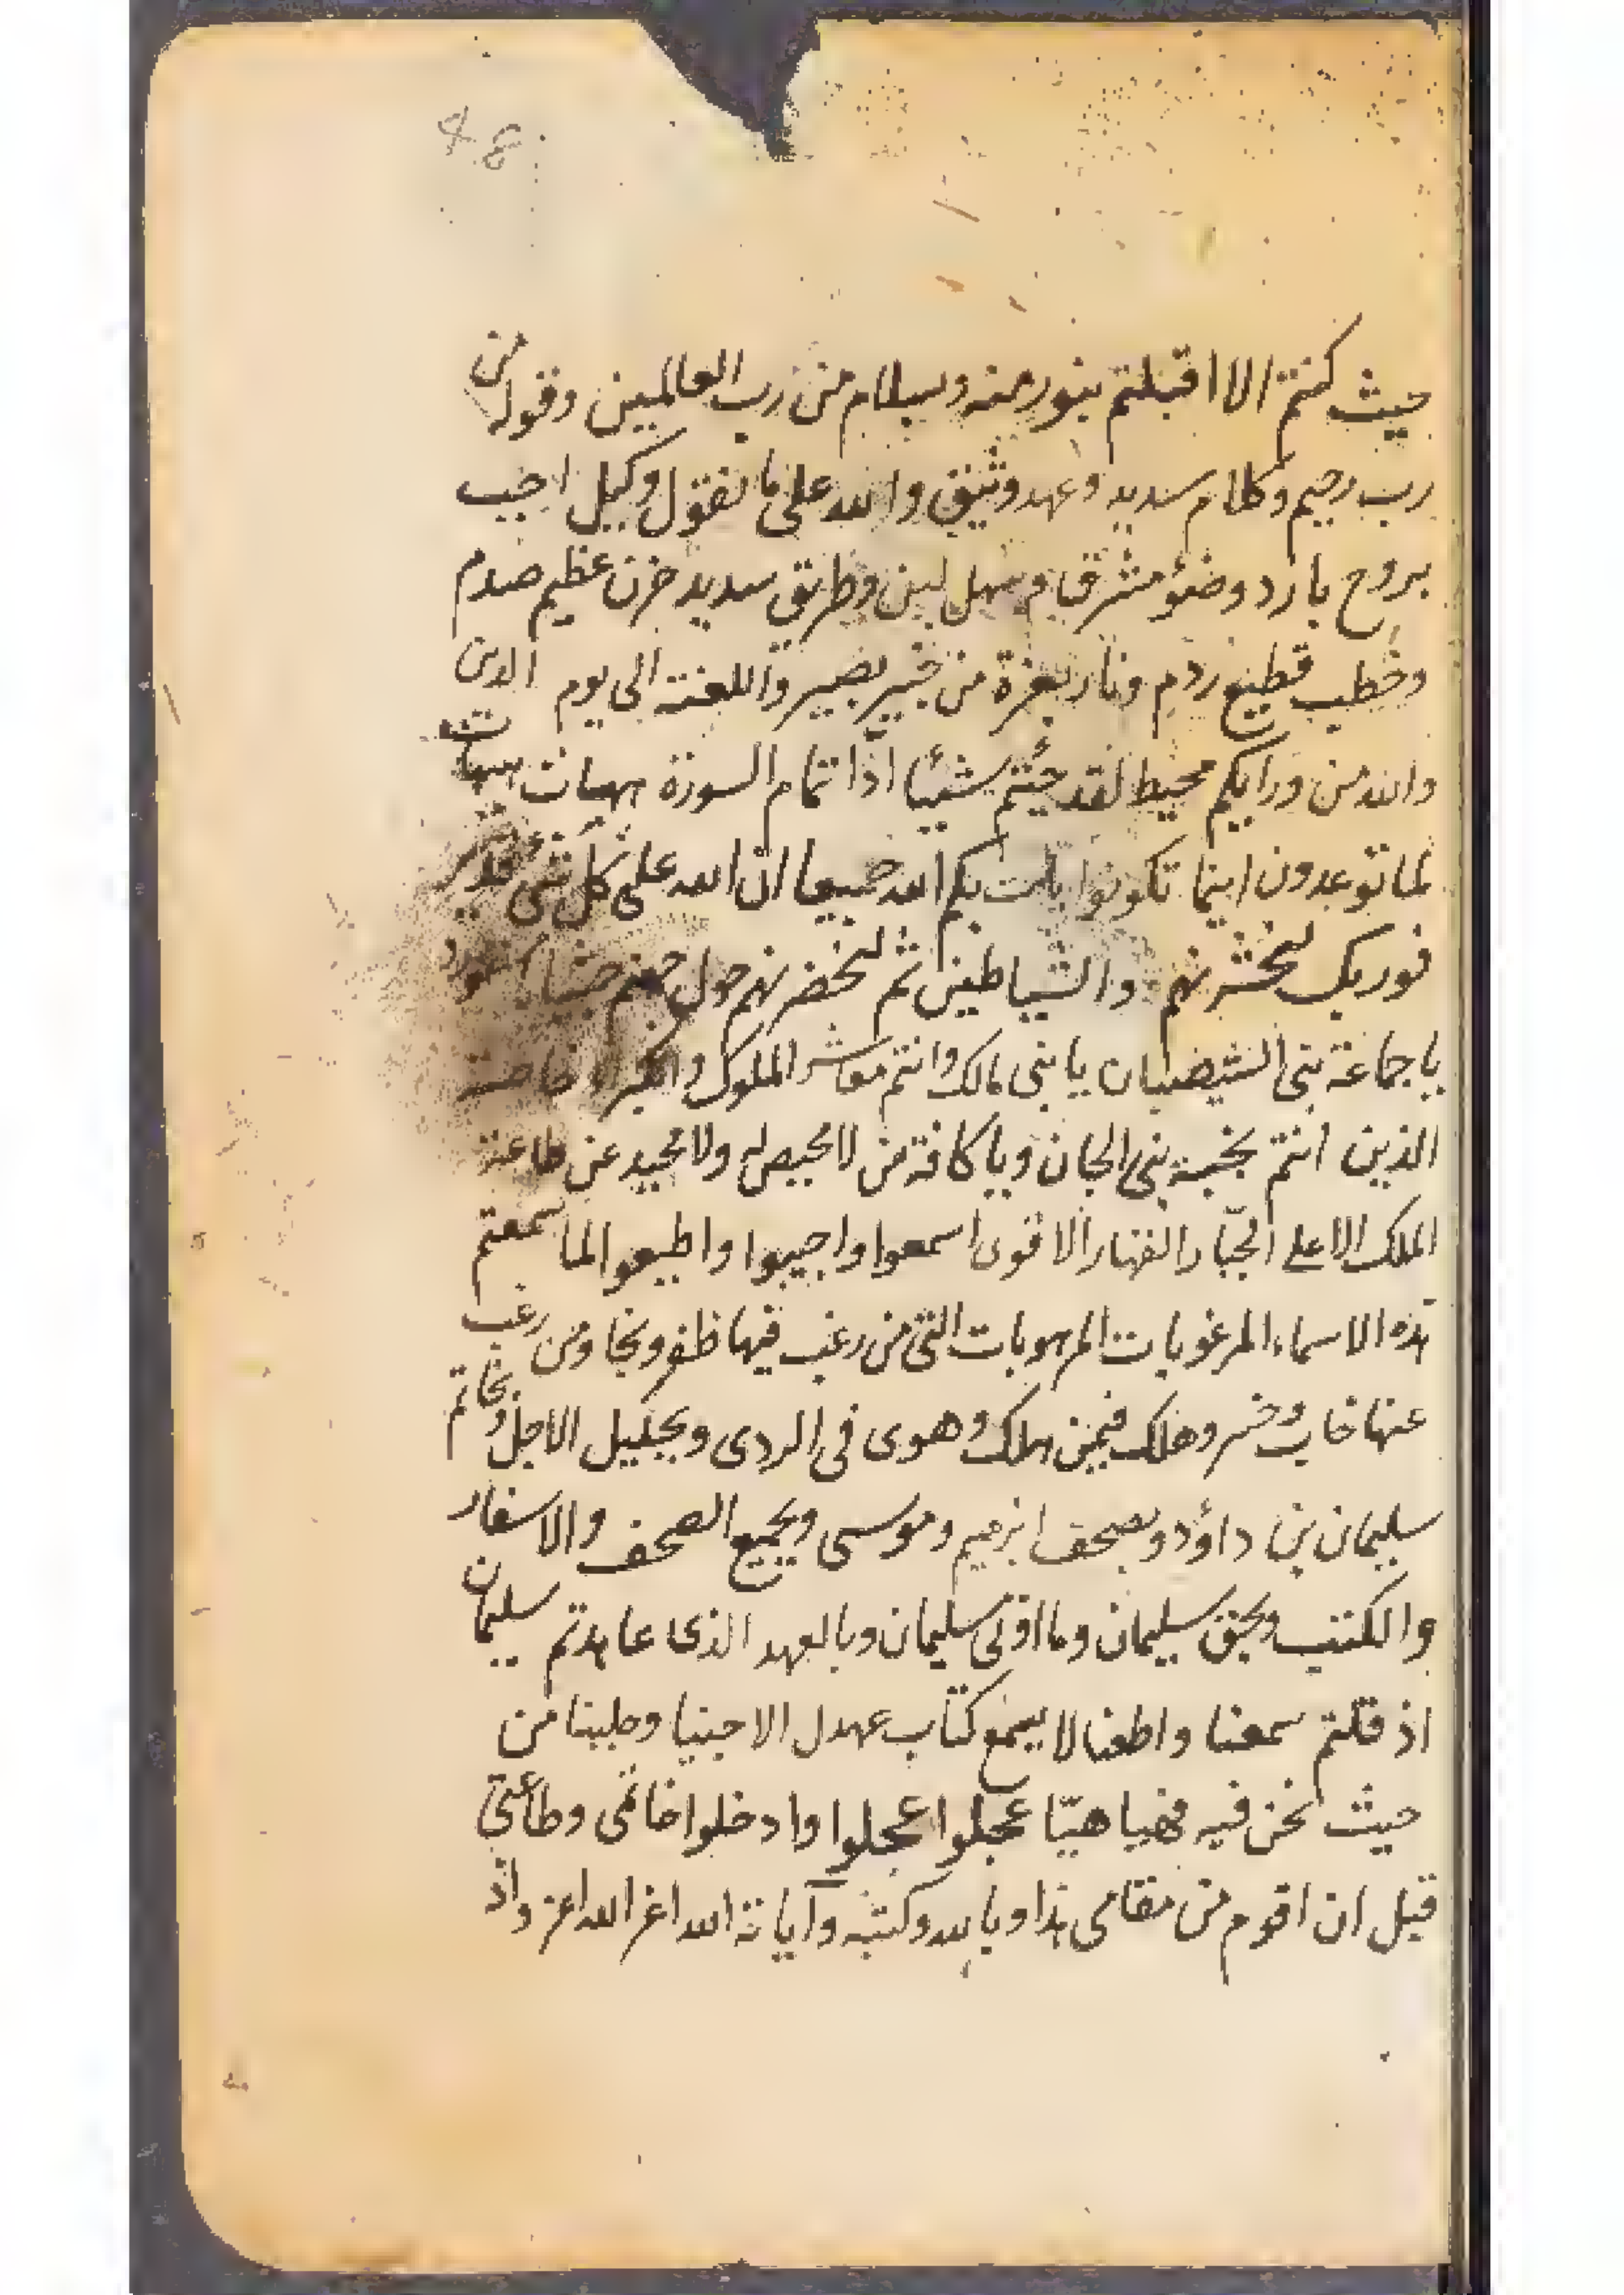 حيث كنتم الا اقبلتم بنور منه وسلام من رب العالمين وقول من
رب رحيم وكلام سديد وعهد وثيق والله على ما نقول وكيل اجب
بروح بارد وضؤ مشرق وسهل لين وطريق سديد حزن عظيم صدم
وخطب قطيع ردم ونار بعزة من خبير بصير واللعنة الى يوم الدين
والله من ورايكم محيط لقد جئتم شيئا ادّا تمام السورة هيهات هيهات
لما توعدون اينما تكونوا يات بكم الله جميعا ان الله على كل شئ قدير
فوربك لنحشرنهم والشياطين ثم لنحضرنهم حول جهنم جثيا
يا جماعة بنى الشيصبان يا بنى مالك وانتم معاشر الملوك خاصة
الذين انتم نخبة بنى الجان ويا كافة من لا محيص له ولا محيد عن طاعة
الملك الاعلى الجبّار القهار الا قوى اسمعوا واجيبوا واطيعوا لما سمعتم
هذه الاسماء المرغوبات المرهوبات التى من رغب فيها ظفر ونجا ومن رغب
عنها خاب وخسر وهلك فيمن هلك وهوى فى الردى وبجليل الاجل وبخاتم
سليمان بن داؤد وبصحف ابرهيم وموسى وبجميع الصحف والاسفار
والكتب وبحق سليمان وما اوتى سليمان وبالعهد الذى عاهدتم سليمان
اذ قلتم سمعنا واطعنا لا يسمع كتاب عهدل الا جينا من
حيث نحن فيه فهيا هيّا عجلوا عجلوا وادخلوا خاتمى وطاعتى
قبل ان اقوم من مقامى هذا وبالله وكتبه وآياته الله اعز الله اعز واذ